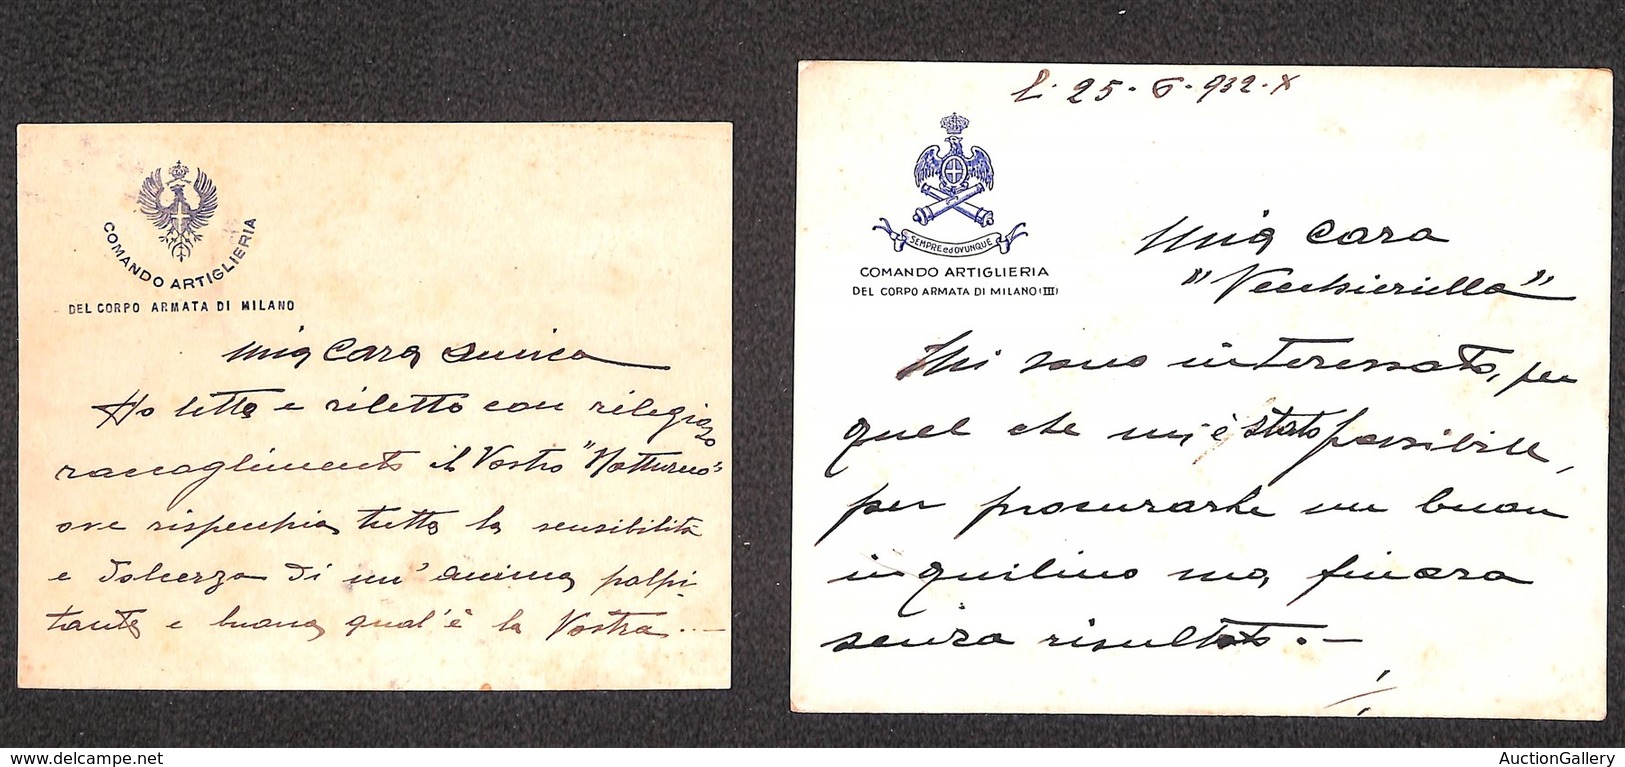 COMANDO ARTIGLIERIA
DEL CORPO ARMATA DI MILANO
Mia Cara Amica
Ho letto e riletto con religioso
raccoglimento il Vostro "Notturno"
ove rispecchia tutta la sensibilità
e dolcezza di un'anima palpi-
tante e buona qual'è la Vostra...—
25-6-932-X
SEMPRE ed OVUNQUE
COMANDO ARTIGLIERIA
DEL CORPO ARMATA DI MILANO (III)
Mia Cara
"Vecchierella"
Mi sono interessato, per
quel che mi è stato possibile,
per procurarle un buon
inquilino ma, finora
senza risultato.—
./.
AuctionGallery